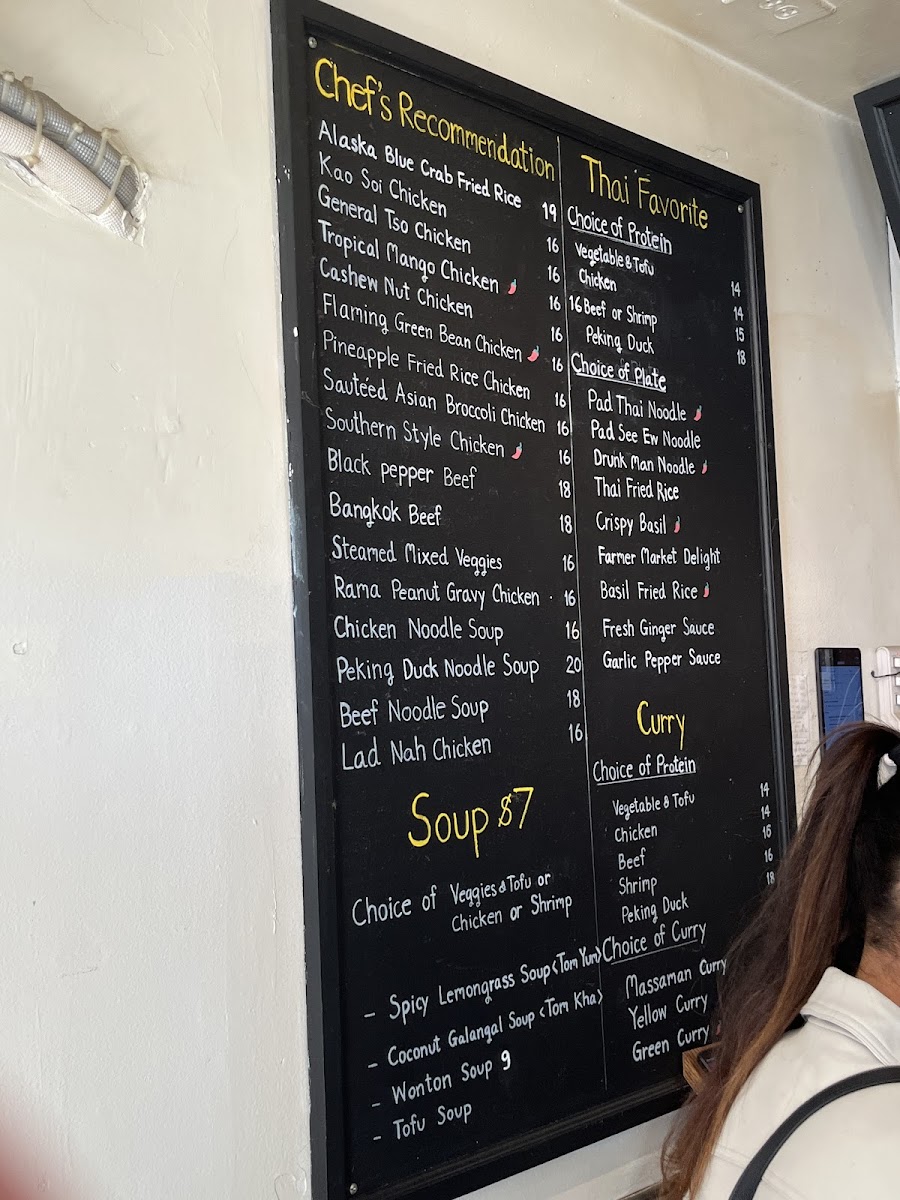 Chef's Recommendation
Alaska Blue Crab Fried Rice 19
Kao Soi Chicken 16
General Tso Chicken 16
Tropical Mango Chicken 16
Cashew Nut Chicken 16
Flaming Green Bean Chicken 16
Pineapple Fried Rice Chicken 16
Sautéed Asian Broccoli Chicken 16
Southern Style Chicken 16
Black pepper Beef 18
Bangkok Beef 18
Steamed Mixed Veggies 16
Rama Peanut Gravy Chicken 16
Chicken Noodle Soup 16
Peking Duck Noodle Soup 20
Beef Noodle Soup 18
Lad Nah Chicken 16
Soup $7
Choice of Veggies & Tofu or
Chicken or Shrimp
- Spicy Lemongrass Soup <Tom Yum>
- Coconut Galangal Soup <Tom Kha>
- Wonton Soup 9
- Tofu Soup
Thai Favorite
Choice of Protein
Vegetable & Tofu 14
Chicken 14
16 Beef or Shrimp 15
Peking Duck 18
Choice of Plate
Pad Thai Noodle
Pad See Ew Noodle
Drunk Man Noodle
Thai Fried Rice
Crispy Basil
Farmer Market Delight
Basil Fried Rice
Fresh Ginger Sauce
Garlic Pepper Sauce
Curry
Choice of Protein
Vegetable & Tofu 14
Chicken 14
Beef 16
Shrimp 16
Peking Duck 18
Choice of Curry
Massaman Curry
Yellow Curry
Green Curry